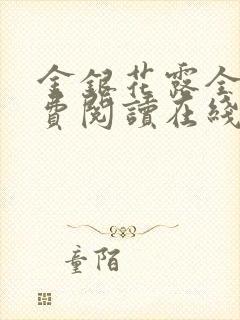 金銀花露全
費閱讀在綫
童陌